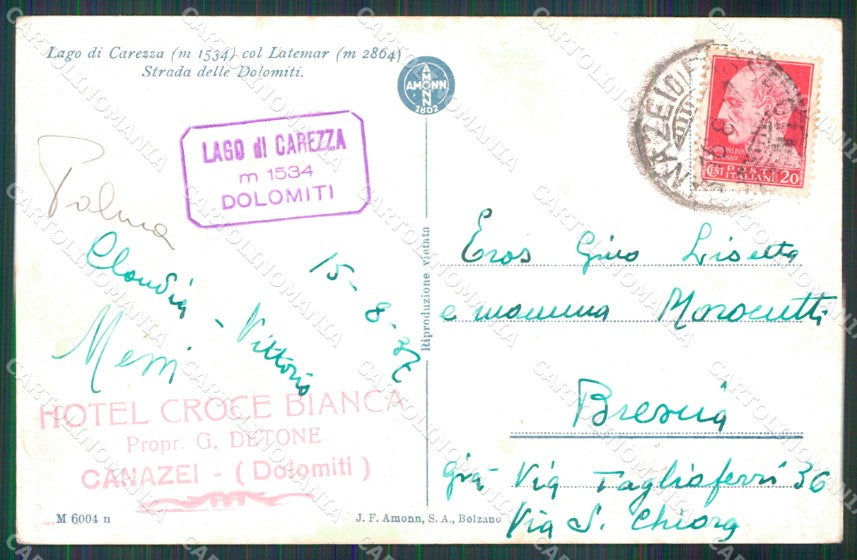 Lago di Carezza (m 1534) col Latemar (m 2864)
Strada delle Dolomiti.
AMONN
AMONN
1802
LAGO di CAREZZA
m 1534
DOLOMITI
Palma
Claudia - Vittorio
15-8-
HOTEL CROCE BIANCA
Propr. G. DETONE
CANAZEI - (Dolomiti)
M 6004 n
Riproduzione vietata
J. F. Amonn, S. A., Bolzano
CENT POSTE ITALIANE 20
Eros Gino Lisetta
e mamma Morocutti
Brescia
già Via Tagliaferri 36
Via S. Chiara
CARTOLINOMANIA